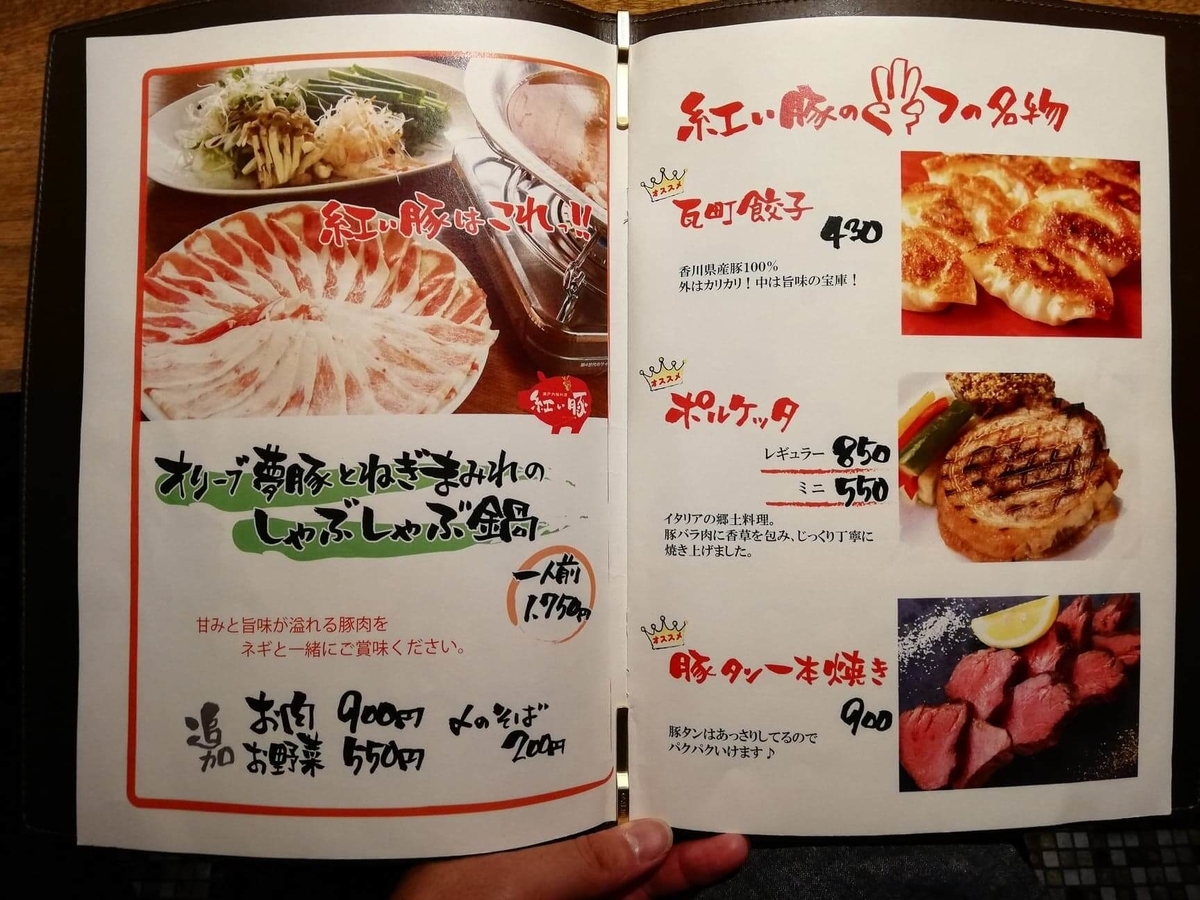 紅い豚はこれっ!!
紅い豚
オリーブ夢豚とねぎまみれの
しゃぶしゃぶ鍋
一人前
1,750円
甘みと旨味が溢れる豚肉を
ネギと一緒にご賞味ください。
追加
お肉 900円
お野菜 550円
〆のそば
200円
紅い豚の つの名物
オススメ
瓦町餃子
430
香川県産豚100%
外はカリカリ!中は旨味の宝庫!
オススメ
ポルケッタ
レギュラー 850
ミニ 550
イタリアの郷土料理。
豚バラ肉に香草を包み、じっくり丁寧に
焼き上げました。
オススメ
豚タン一本焼き
900
豚タンはあっさりしてるので
パクパクいけます♪